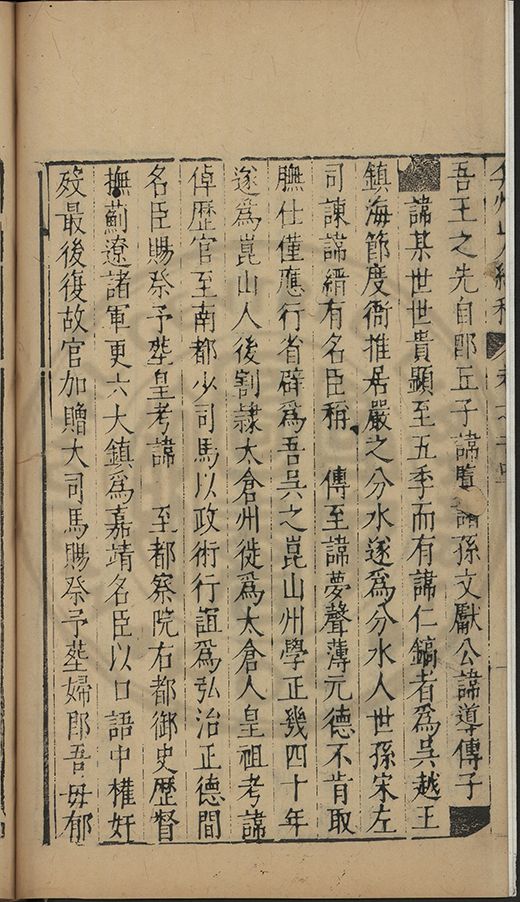 吾王之先自郎丘子諱覽諸孫文獻公諱導傳子
諱某世世貴顯至五季而有諱仁鎬者爲吳越王
鎮海節度衙推居嚴之分水遂爲分水人世孫宋左
司諫諱縉有名臣稱 傳至諱夢聲薄元德不肯取
膴仕僅應行省辟爲吾吳之崑山州學正幾四十年
遂爲崑山人後割隷太倉州徙爲太倉人皇祖考諱
倬歷官至南都少司馬以政術行誼爲弘治正德間
名臣賜祭予塟皇考諱 至都察院右都御史歷督
撫薊遼諸軍更六大鎮爲嘉靖名臣以口語中權奸
歿最後復故官加贈大司馬賜祭予塟婦郎吾毋郁